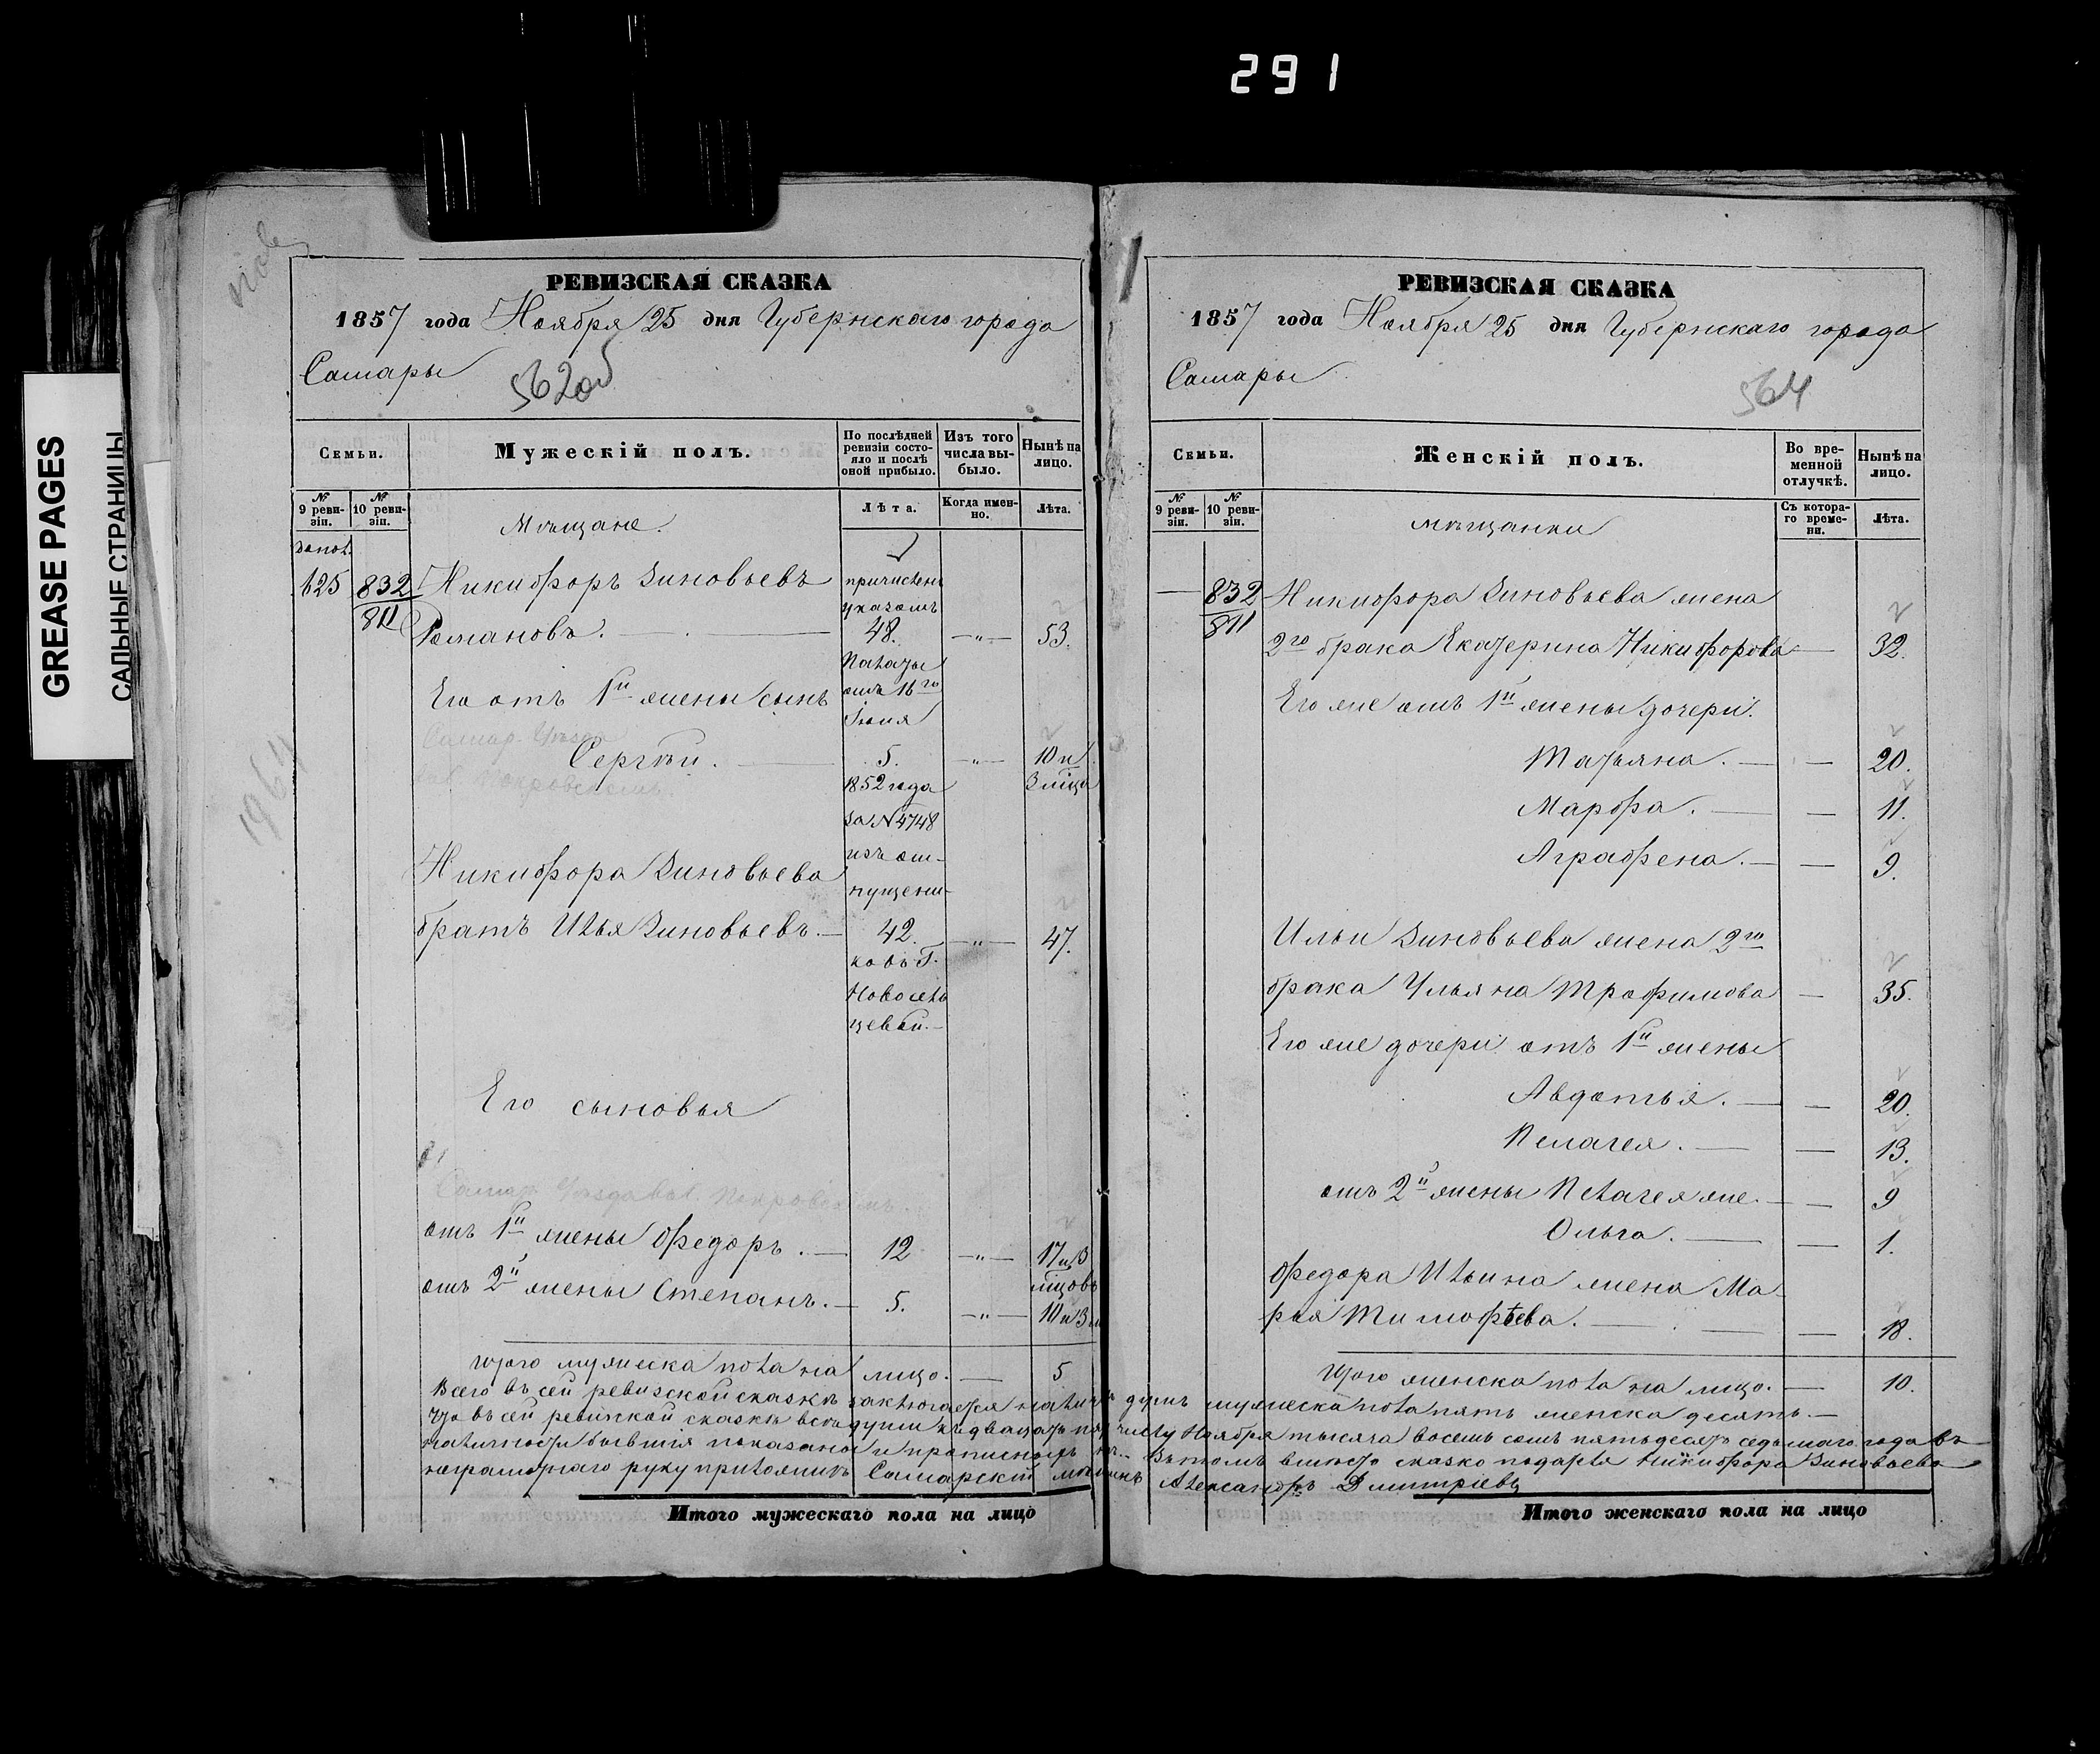 291
GREASE PAGES
САЛЬНЫЕ СТРАНИЦЫ
1964
РЕВИЗСКАЯ СКАЗКА
1857 года Ноября 25 дня Губернскаго города
Самары
562об
Семьи.
Мужескій полъ.
По послѣдней ревизіи состояло и послѣ оной прибыло.
Изъ того числа выбыло.
Нынѣ на лицо.
№ 9 ревизіи.
№ 10 ревизіи.
Лѣта.
Когда именно.
Лѣта.
Мѣщане.
625 832 Никифоръ Зиновьевъ
811 Романовъ. 48. —"— 53.
причислены
указомъ
Палаты
отъ 16го
Іюня
1852 года
за N 4748
изъ от-
пущени-
ковъ Г.
Новосель
цевой.
Его отъ 1й жены сынъ
Самар. Уѣзда
Сергѣй. 5. —"— 10 и
3 мѣца
Покровскомъ.
Никифора Зиновьева
братъ Илья Зиновьевъ. 42. —"— 47.
Его сыновья
Самар. Уѣзда вол. Покровскомъ.
отъ 1й жены Федоръ. 12 —"— 17 и 3
мѣцовъ
отъ 2й жены Степанъ. 5. —"— 10 и 3 м
Итого мужеска пола на лицо. 5
РЕВИЗСКАЯ СКАЗКА
1857 года Ноября 25 дня Губернскаго города
Самары
564
Семьи.
Женскій полъ.
Во временной отлучкѣ.
Нынѣ на лицо.
№ 9 ревизіи.
№ 10 ревизіи.
Съ котораго времени.
Лѣта.
мѣщанки
— 832 Никифора Зиновьева жена
811 2го брака Екатерина Никифорова — 32.
Его же отъ 1й жены дочери.
Татьяна. — 20.
Марфа. — 11.
Аграфена. — 9.
Ильи Зиновьева жена 2го
брака Ульяна Трофимова — 35.
Его же дочери отъ 1й жены
Авдотья. — 20.
Пелагея. — 13.
отъ 2й жены Пелагея же. — 9
Ольга. — 1.
Федора Ильина жена Ма-
рья Тимофѣева. — 18.
Итого женска пола на лицо. — 10.
Всего въ сей ревизской сказкѣ заключается налич душъ мужеска пола пять женска десять.—
Что въ сей ревизской сказкѣ все души къ двадцать пят числу Ноября тысяча восемь сотъ пятьдесятъ седьмаго года въ
наличности бывшія показаны и прописныхъ нѣ Въ томъ вмѣсто сказко подателя Никифора Зиновьева
неграмотнаго руку приложилъ Самарскій мѣщанинъ Александръ Дмитріевъ
Итого мужескаго пола на лицо
Итого женскаго пола на лицо